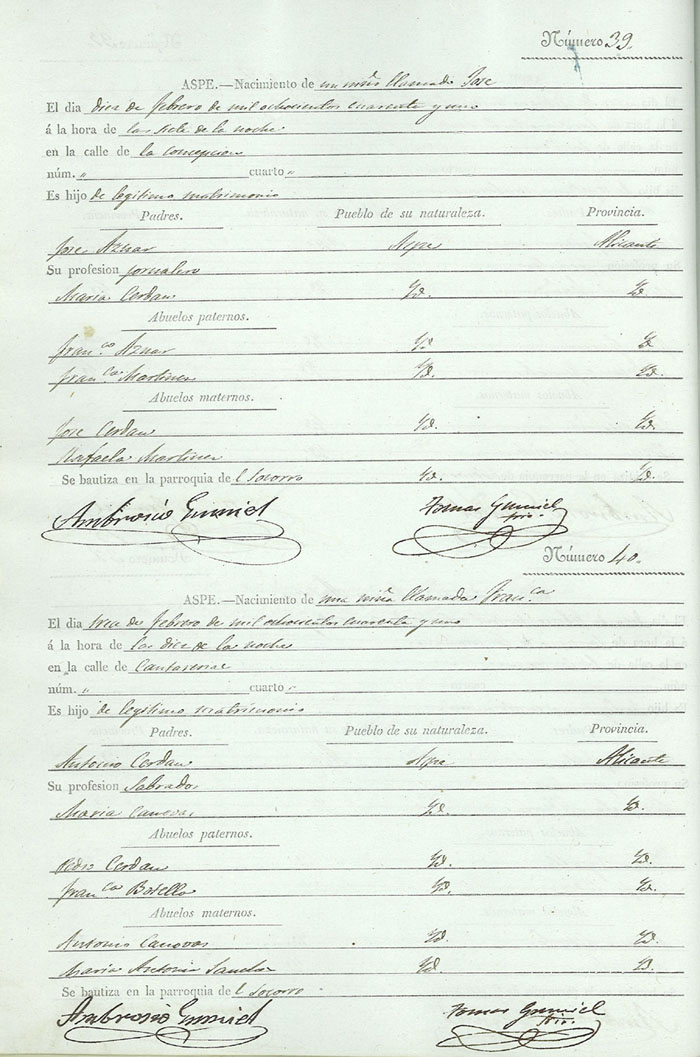 Número 39.
ASPE.—Nacimiento de un niño llamado Jose
El dia diez de febrero de mil ochocientos cuarenta y uno
á la hora de las siete de la noche
en la calle de la Concepcion
núm. „ cuarto „
Es hijo de legitimo matrimonio
Padres. Pueblo de su naturaleza. Provincia.
Jose Aznar Aspe Alicante
Su profesion jornalero
Maria Cerdan Yd. Yd.
Abuelos paternos.
Fran.co Aznar Yd. Yd.
Fran.ca Martinez Yd. Yd.
Abuelos maternos.
Jose Cerdan Yd. Yd.
Rafaela Martinez
Se bautiza en la parroquia del Socorro Yd. Yd.
Ambrosio Gumiel Tomas Gumiel
Número 40.
ASPE.—Nacimiento de una niña llamada Fran.ca
El dia trece de febrero de mil ochocientos cuarenta y uno
á la hora de las diez de la noche
en la calle de
núm. „ cuarto „
Es hijo de legitimo matrimonio
Padres. Pueblo de su naturaleza. Provincia.
Antonio Cerdan Aspe Alicante
Su profesion labrador
Maria Canovas Yd. Yd.
Abuelos paternos.
Pedro Cerdan Yd. Yd.
Fran.ca Botella Yd. Yd.
Abuelos maternos.
Antonio Canovas Yd. Yd.
Maria Antonia Sanchez Yd. Yd.
Se bautiza en la parroquia del Socorro
Ambrosio Gumiel Tomas Gumiel